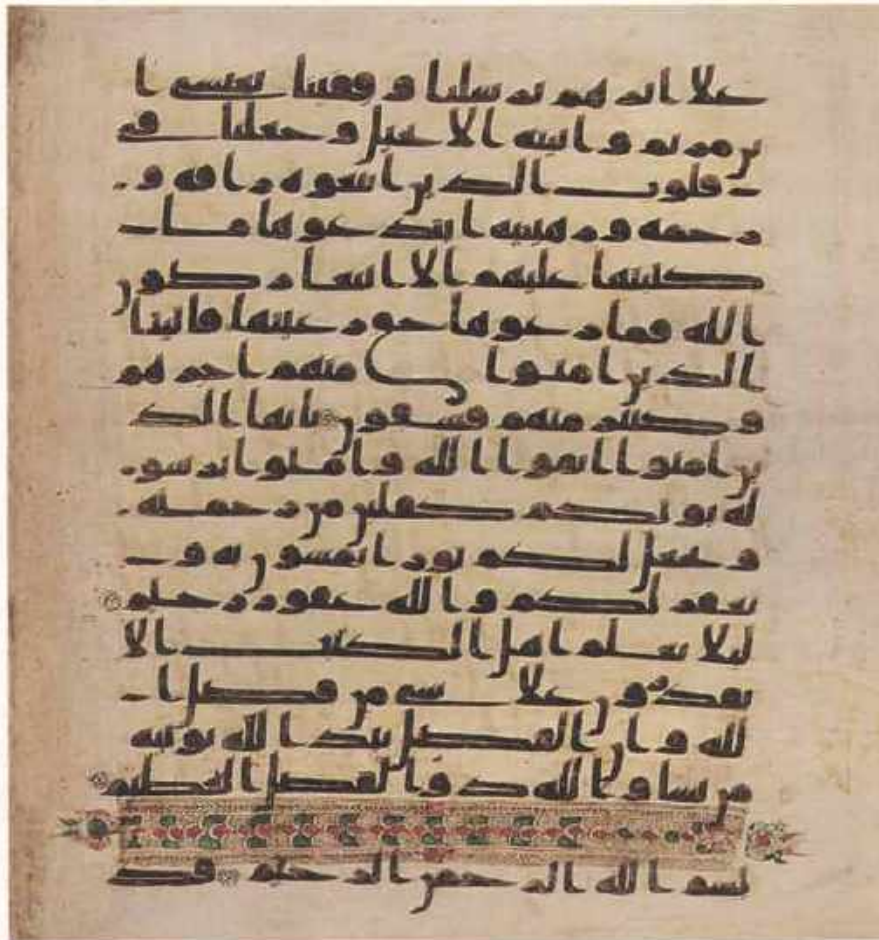 علا اثرهم برسلنا وقفينا بعيسى ا
بن مريم واتينه الانجيل وجعلنا في
قلوب الذين اتبعوه رافة و
رحمة ورهبنية ابتدعوها ما
كتبنها عليهم الا ابتغا رضون
الله فما رعوها حق رعيتها فاتينا
الذين امنوا منهم اجرهم
وكثير منهم فسقون يايها الذ
ين امنوا اتقوا الله وامنوا برسو
له يوتكم كفلين من رحمته
ويجعل لكم نورا تمشون به و
يغفر لكم والله غفور رحيم
ليلا يعلم اهل الكتب الا
يقدرون علا شي من فضل ا
لله وان الفضل بيد الله يوتيه
من يشا والله ذو الفضل العظيم
بسم الله الرحمن الرحيم قد